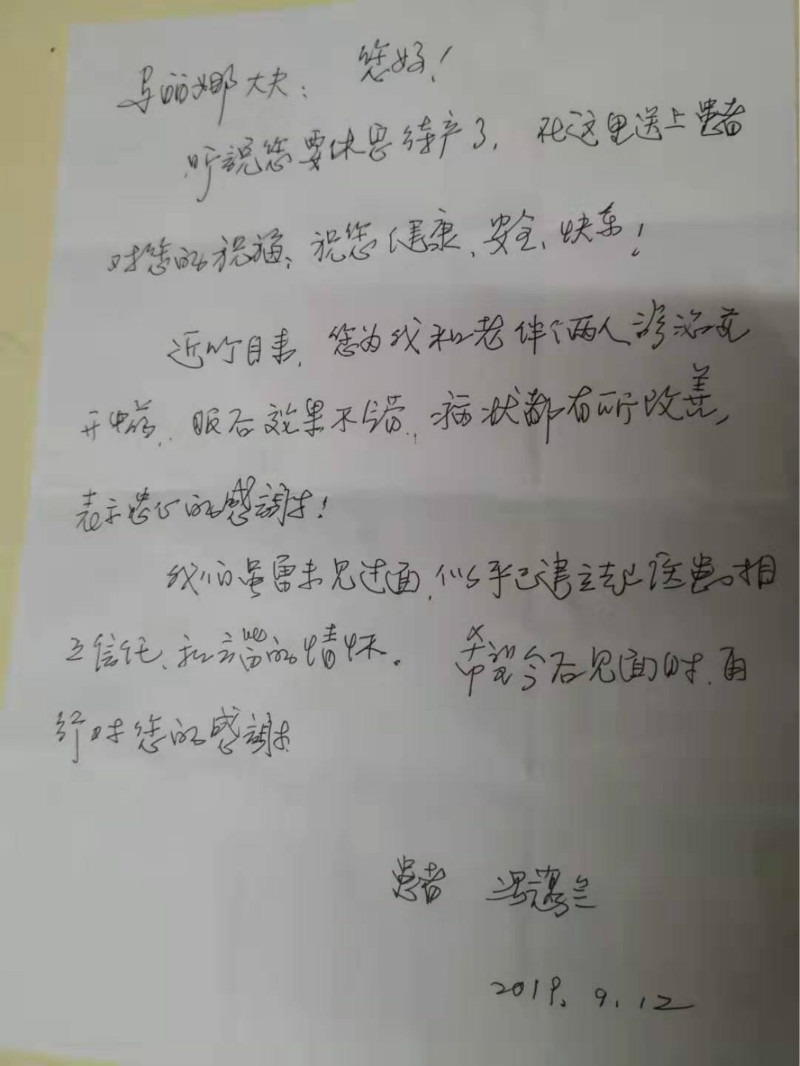 丽娜大夫：您好！
听说您要休息待产了，在这里送上患者
对您的祝福，祝您健康、安全、快乐！
近日来，您为我和老伴个两人
开中药，服后效果不错，病状都有所改善，
表示的感謝！
我们虽未见过面，似乎已建立起医患相
互信任、和谐的情怀。希望今后见面时，再
行对您的感謝
患者 冯兰
2019.9.12